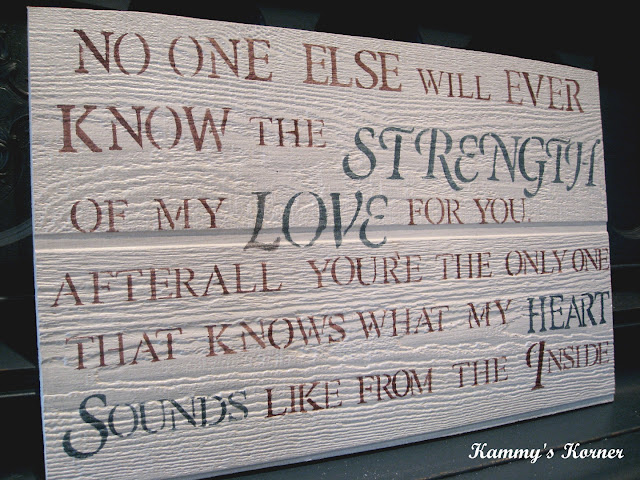 NO ONE ELSE WILL EVER
KNOW THE STRENGTH
OF MY LOVE FOR YOU.
AFTERALL YOU'RE THE ONLY ONE
THAT KNOWS WHAT MY HEART
SOUNDS LIKE FROM THE INSIDE
Kammy's Korner